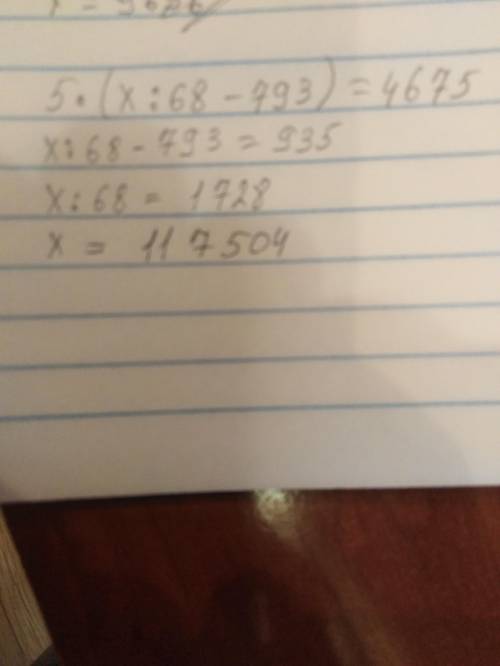 5·(x:68-793)=4675
x:68-793=935
x:68= 1728
x= 117504